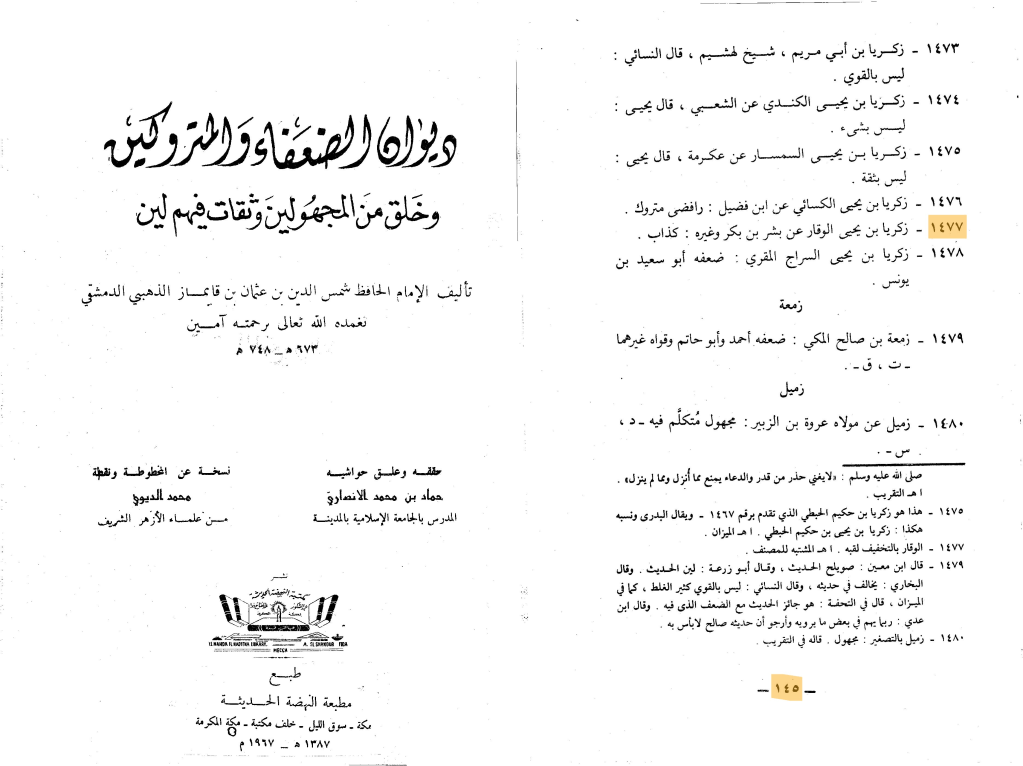 ديوان الضعفاء والمتروكين
وخلق من المجهولين وثقات فيهم لين
تأليف الإمام الحافظ شمس الدين بن عثمان بن قايماز الذهبي الدمشقي
تغمده الله تعالى برحمته آمين
٦٧٣ هـ ــ ٧٤٨ هـ
حققه وعلق حواشيه
حماد بن محمد الانصاري
المدرس بالجامعة الإسلامية بالمدينة
نسخة عن المخطوطة ونقطة
محمد الديوي
من علماء الأزهر الشريف
نشر
مكتبة النهضة الحديثة
MECCA
طبع
مطبعة النهضة الحديثة
مكة ـ سوق الليل ـ خلف مكتبة ـ مكة المكرمة
١٣٨٧ هـ ــ ١٩٦٧ م
١٤٧٣ ـ زكريا بن أبي مريم ، شيخ لهشيم ، قال النسائي :
ليس بالقوي .
١٤٧٤ ـ زكريا بن يحيى الكندي عن الشعبي ، قال يحيى :
ليس بشىء .
١٤٧٥ ـ زكريا بن يحيى السمسار عن عكرمة ، قال يحيى :
ليس بثقة .
١٤٧٦ ـ زكريا بن يحيى الكسائي عن ابن فضيل : رافضى متروك .
١٤٧٧ ـ زكريا بن يحيى الوقار عن بشر بن بكر وغيره : كذاب .
١٤٧٨ ـ زكريا بن يحيى السراج المقري : ضعفه أبو سعيد بن
يونس .
زمعة
١٤٧٩ ـ زمعة بن صالح المكي : ضعفه أحمد وأبو حاتم وقواه غيرهما
ـ ت ، ق ـ .
زميل
١٤٨٠ ـ زميل عن مولاه عروة بن الزبير : مجهول مُتكلَّم فيه ـ د ،
س ـ .
صلى الله عليه وسلم : «لايغني حذر من قدر والدعاء يمنع مما أُنزل ومما لم ينزل» .
ا هـ التقريب .
١٤٧٥ ـ هذا هو زكريا بن حكيم الحبطي الذي تقدم برقم ١٤٦٧ ـ ويقال البدرى ونسبه
هكذا : زكريا بن يحيى بن حكيم الحبطي . ا هـ الميزان .
١٤٧٧ ـ الوقار بالتخفيف لقبه . ا هـ المشتبه للمصنف .
١٤٧٩ ـ قال ابن معين : صويلح الحديث ، وقال أبو زرعة : لين الحديث . وقال
البخاري : يخالف في حديثه ، وقال النسائي : ليس بالقوي كثير الغلط ، كما في
الميزان ، قال في التحفة : هو جائز الحديث مع الضعف الذى فيه . وقال ابن
عدي : ربما يهم في بعض ما يرويه وأرجو أن حديثه صالح لابأس به .
١٤٨٠ ـ زميل بالتصغير : مجهول . قاله في التقريب .
ــ ١٤٥ ــ